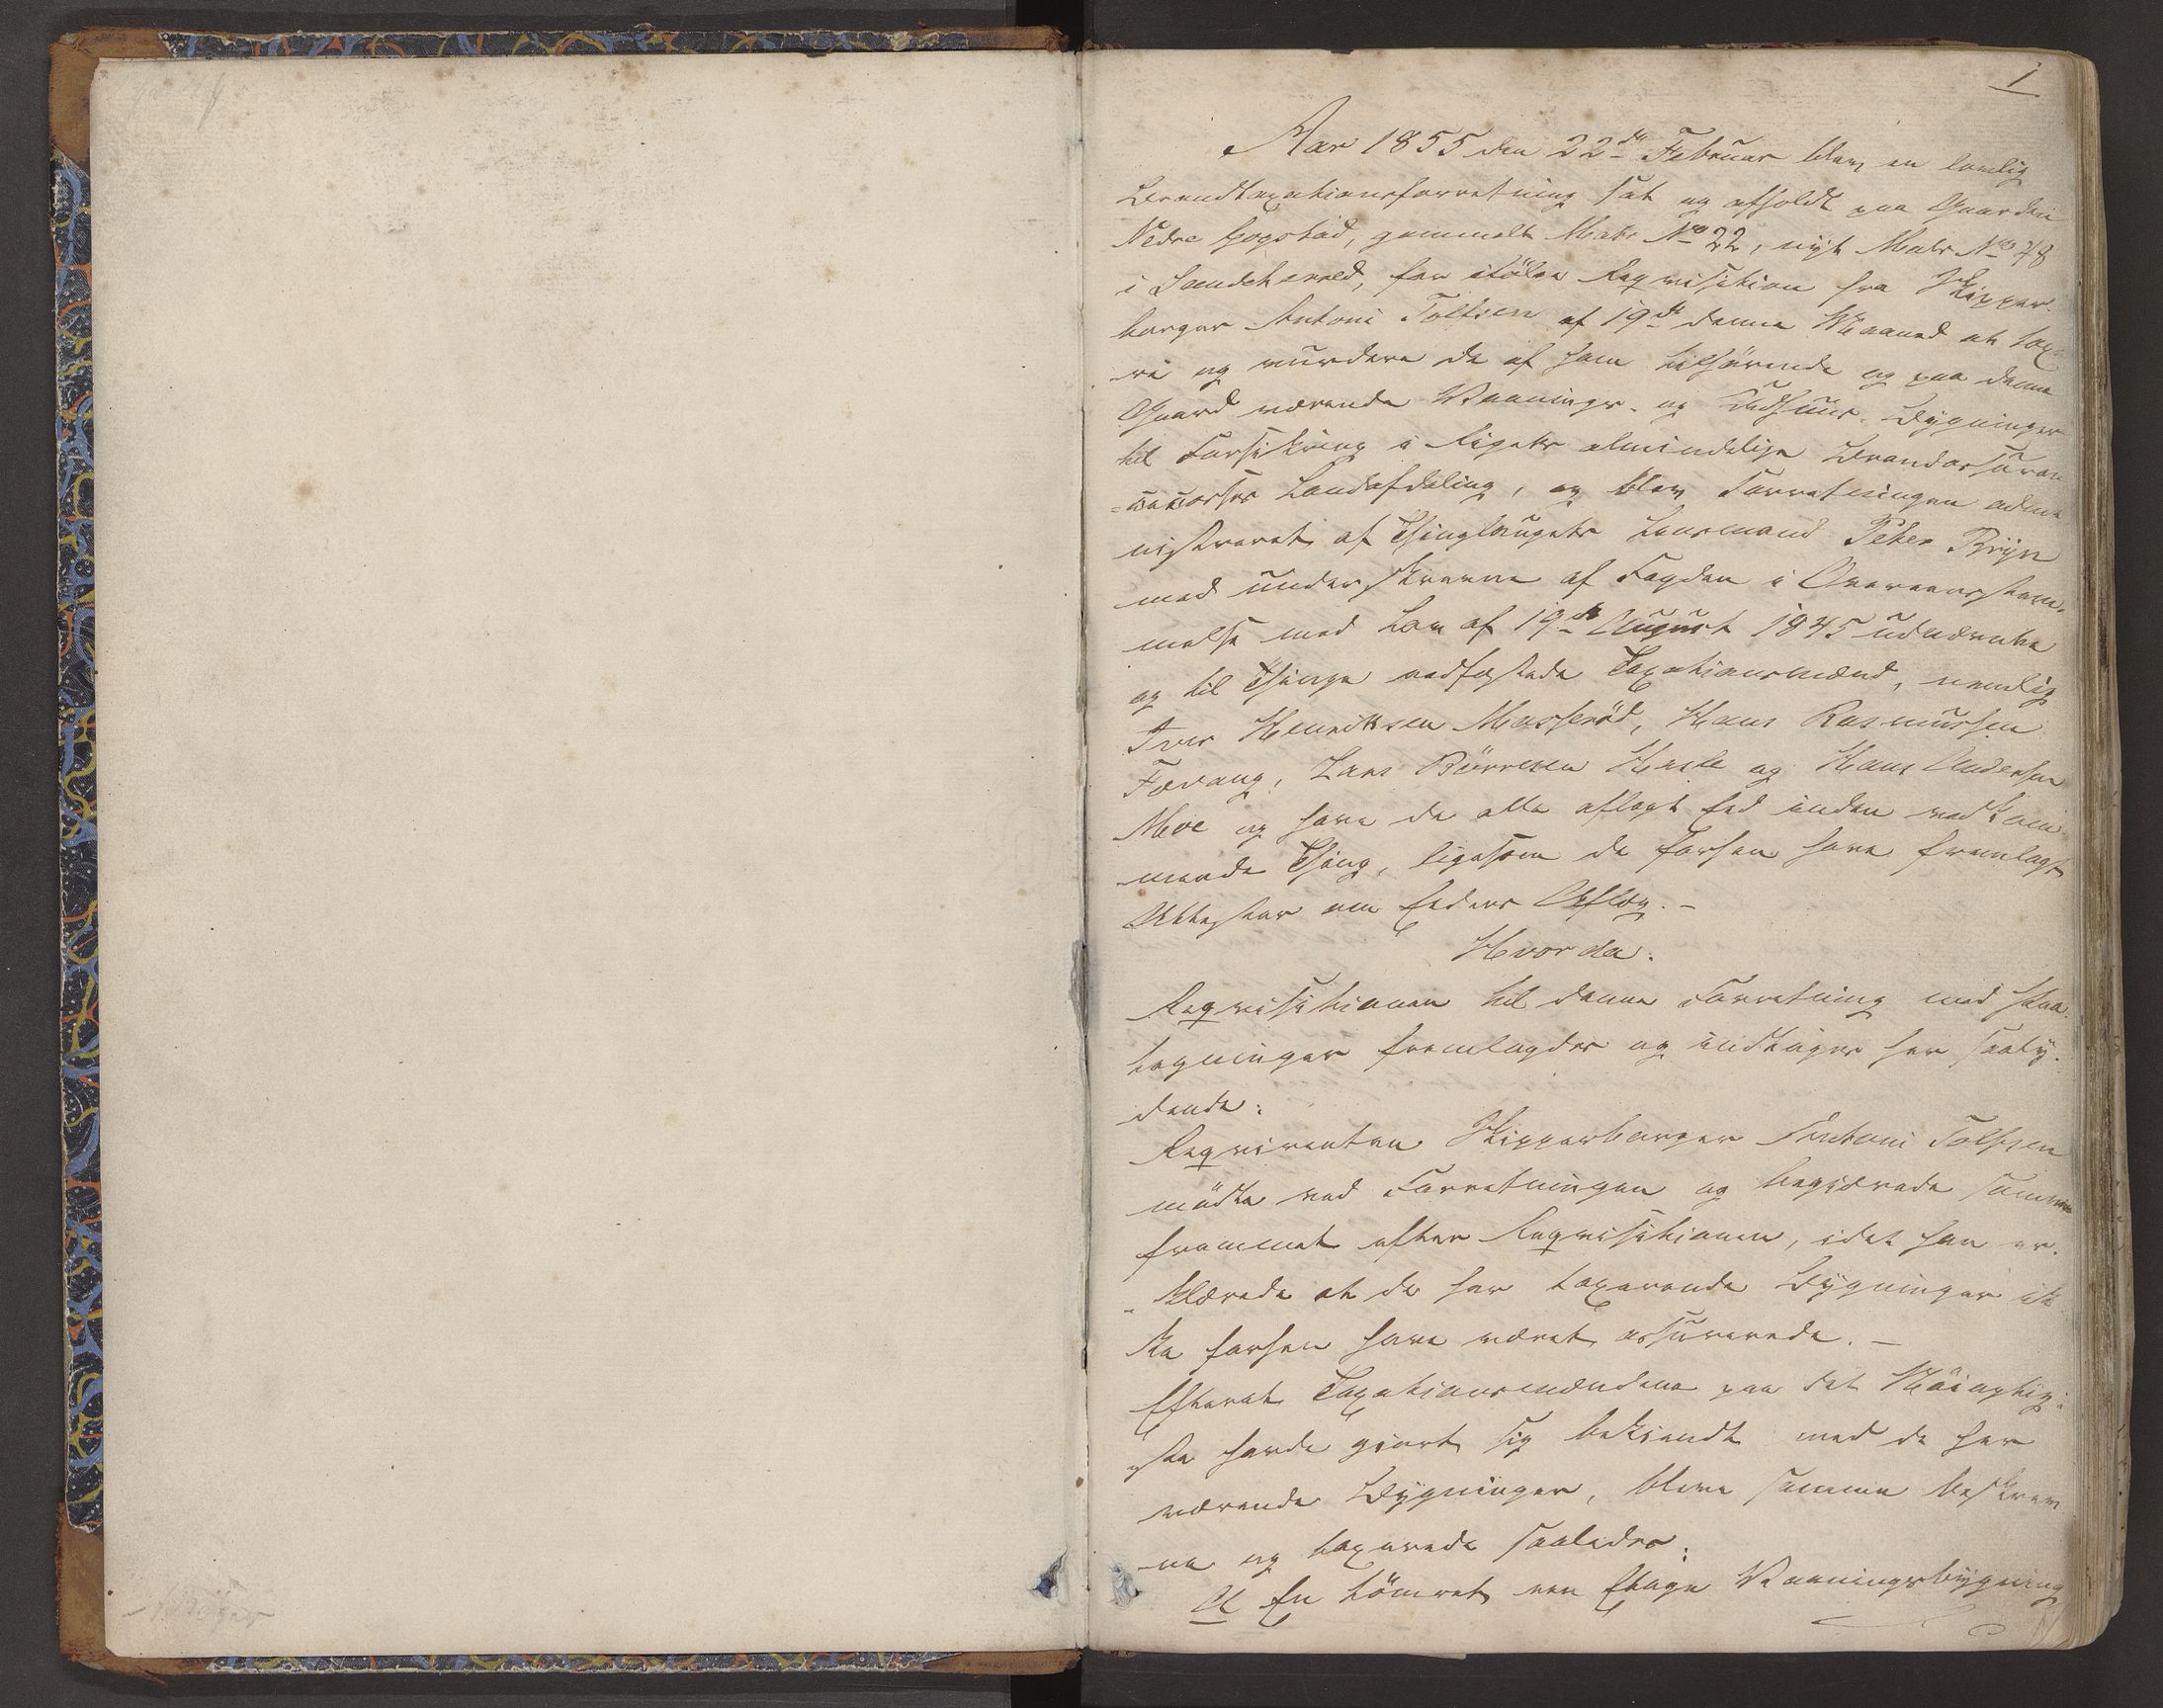 1
Aar 1855 den 22de Februar blev en lovlig
Brandtaxationsforretning sat og afholdt paa Gaarden
Nedre Gogstad, gammelt Matr No 22, nyt Matr No 48
i Sandeherred, for ifölge Reqvisition fra Skipper-
borger Antoni Tollsen af 19de denne Maaned at tax-
re og vurdere de af ham tilhörende og paa denne
Gaard værende Vaanings- og Udhuus-Bygninger
til Forsikring i Rigets almindelige Brandassuran
=cecasses Landafdeling, og blev Forretningen admi
nistreret af Thinglaugets Lensmand Peter Bryn
med underskrevne af Fogden i Overeensstem-
melse med Lov af 19de August 1845 udnævnte
og til Thinge edfæstede Taxationsmænd, nemlig
Iver Henriksen Masseröd, Hans Rasmussen
Fevang, Lars Börresen Hasle og Hans Andersen
Moe og have de alle aflagt Eed inden vedkom-
mende Thing, ligesom de forhen have fremlagt
Attester om Edens Aflæg.-
Hvorda:
Reqvisitionen til denne Forretning med Paa-
tegninger fremlagdes og indtages her saaly-
dende:
Reqvirenten Skipperborger Antoni Tollsen
mödte ved Forretningen og begjærede samme
fremmet efter Reqvisitionen, idet han er-
klærede at de her taxerende Bygninger ik
ke forhen have været assurerede.-
Efterat Taxationsmændene paa det Nöiagtig-
ste havde gjort sig bekjendt med de her
værende Bygninger, bleve samme beskrev
ne og taxerede saaledes:
A En tömret een Etages Vaaningsbygning